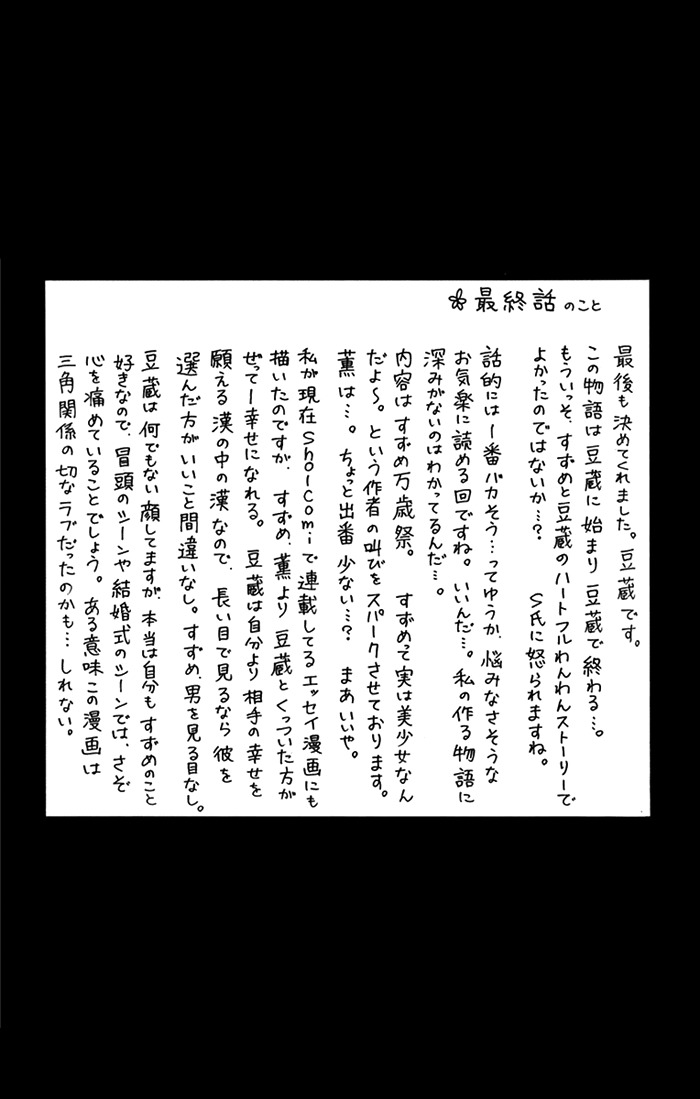 ✿最終話のこと
最後も決めてくれました。豆蔵です。
この物語は豆蔵に始まり豆蔵で終わる…。
もういっそ、すずめと豆蔵のハートフルわんわんストーリーで
よかったのではないか…？　S氏に怒られますね。
話的には1番バカそう…ってゆうか、悩みなさそうな
お気楽に読める回ですね。いいんだ…。私の作る物語に
深みがないのはわかってるんだ…。
内容はすずめ万歳祭。　すずめって実は美少女なん
だよ〜。という作者の叫びをスパークさせております。
薫は…。ちょっと出番少ない…？　まあいいや。
私が現在Sho-Comiで連載してるエッセイ漫画にも
描いたのですが、すずめ、薫より豆蔵とくっついた方が
ぜってー幸せになれる。　豆蔵は自分より相手の幸せを
願える漢の中の漢なので、長い目で見るなら彼を
選んだ方がいいこと間違いなし。すずめ、男を見る目なし。
豆蔵は何でもない顔してますが、本当は自分もすずめのこと
好きなので、冒頭のシーンや結婚式のシーンでは、さぞ
心を痛めていることでしょう。ある意味この漫画は
三角関係の切なラブだったのかも…しれない。